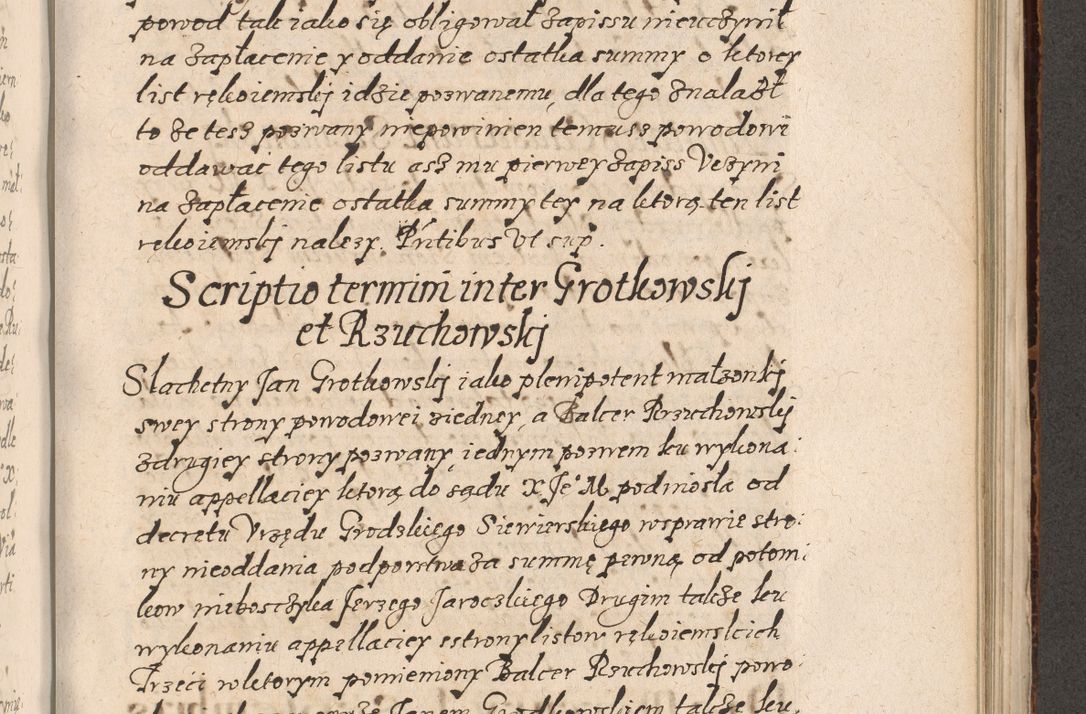 powod tak iako się obligował zapissu nieuczynił
na zapłacenie y oddanie ostatka summy o ktorey
list rękoiemskj idzie pozwanemu, dla tego znalazł
to że tesz pozwany niepowinien temusz powodowi
oddawac tego listu asz mu pierwey zapiss Vczyni
na zapłacenie ostatka summy tey na ktorą ten list
rękoiemskj nalezy. Pntibus Vt sup.
Scriptio termini inter Grotkowskj
et Rzuchowskj
Slachetny Jan Grotkowskj iako plenipotent małzonkj
swey strony powodowei ziedney, a Balcer Rzuchowskj
zdrugiey strony pozwany, iednym pozwem ku wykona:
niu appellaciey ktorą do sądu X Je° M. podniosła od
decretu Vrzędu Grodzkiego Siewierskiego wsprawie stro:
ny nieoddania podporstwa za summę pewną od potom:
kow nieboszczyka Jerzego Jaroczkiego Drugim takze ku
wykonaniu appellaciey estrony listow rękoiemskich
Trzeci wktorym pomieniony Balcer Rzuchowskj powo:
takze ku.